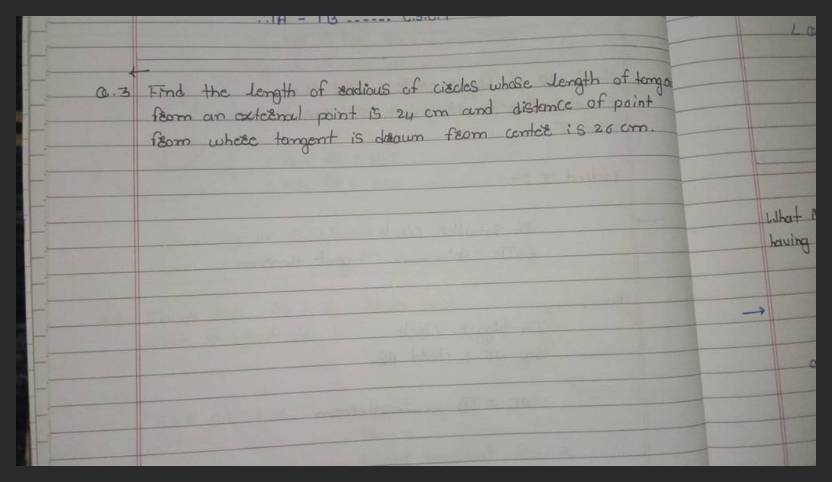 Q.3 Find the length of radious of circles whose length of tange
from an external point is 24 cm and distance of point
from where tangent is drawn from center is 26 cm.
What
having